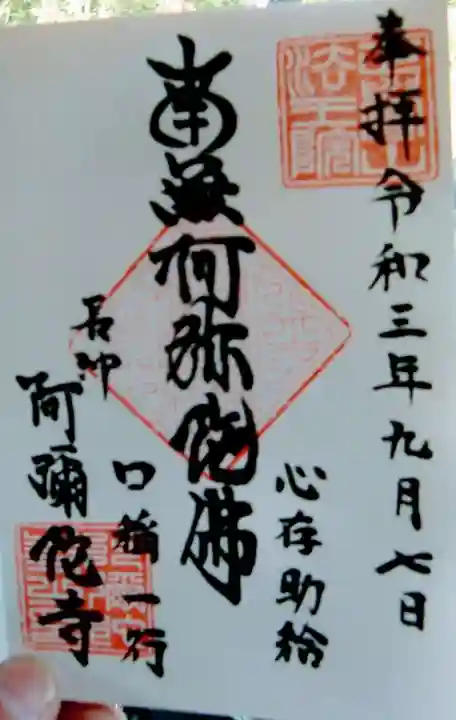 奉拝 令和三年九月七日
心存助給
南無阿弥陀佛
口稱一行
阿彌陀寺